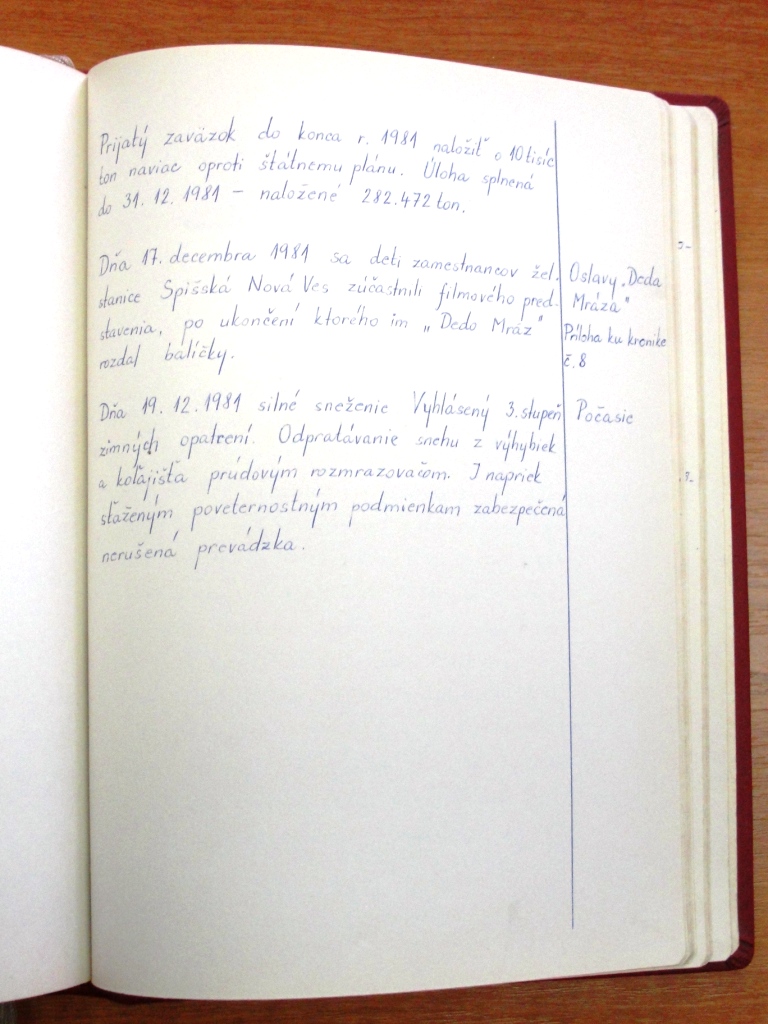 Prijatý zaväzok do konca r. 1981 naložiť o 10 tisíc
ton naviac oproti štátnemu plánu. Úloha splnená
do 31. 12. 1981 – naložené 282.472 ton.
Dňa 17. decembra 1981 sa deti zamestnancov žel.
stanice Spišská Nová Ves zúčastnili filmového pred-
stavenia, po ukončení ktorého im „Dedo Mráz"
rozdal balíčky.
Oslavy „Deda
Mráza"
Príloha ku kronike
č. 8
Dňa 19. 12. 1981 silné sneženie Vyhlásený 3. stupeň
zimných opatrení. Odpratávanie snehu z výhybiek
a koľajišťa prúdovým rozmrazovačom. I napriek
sťaženým poveternostným podmienkam zabezpečená
nerušená prevádzka.
Počasie